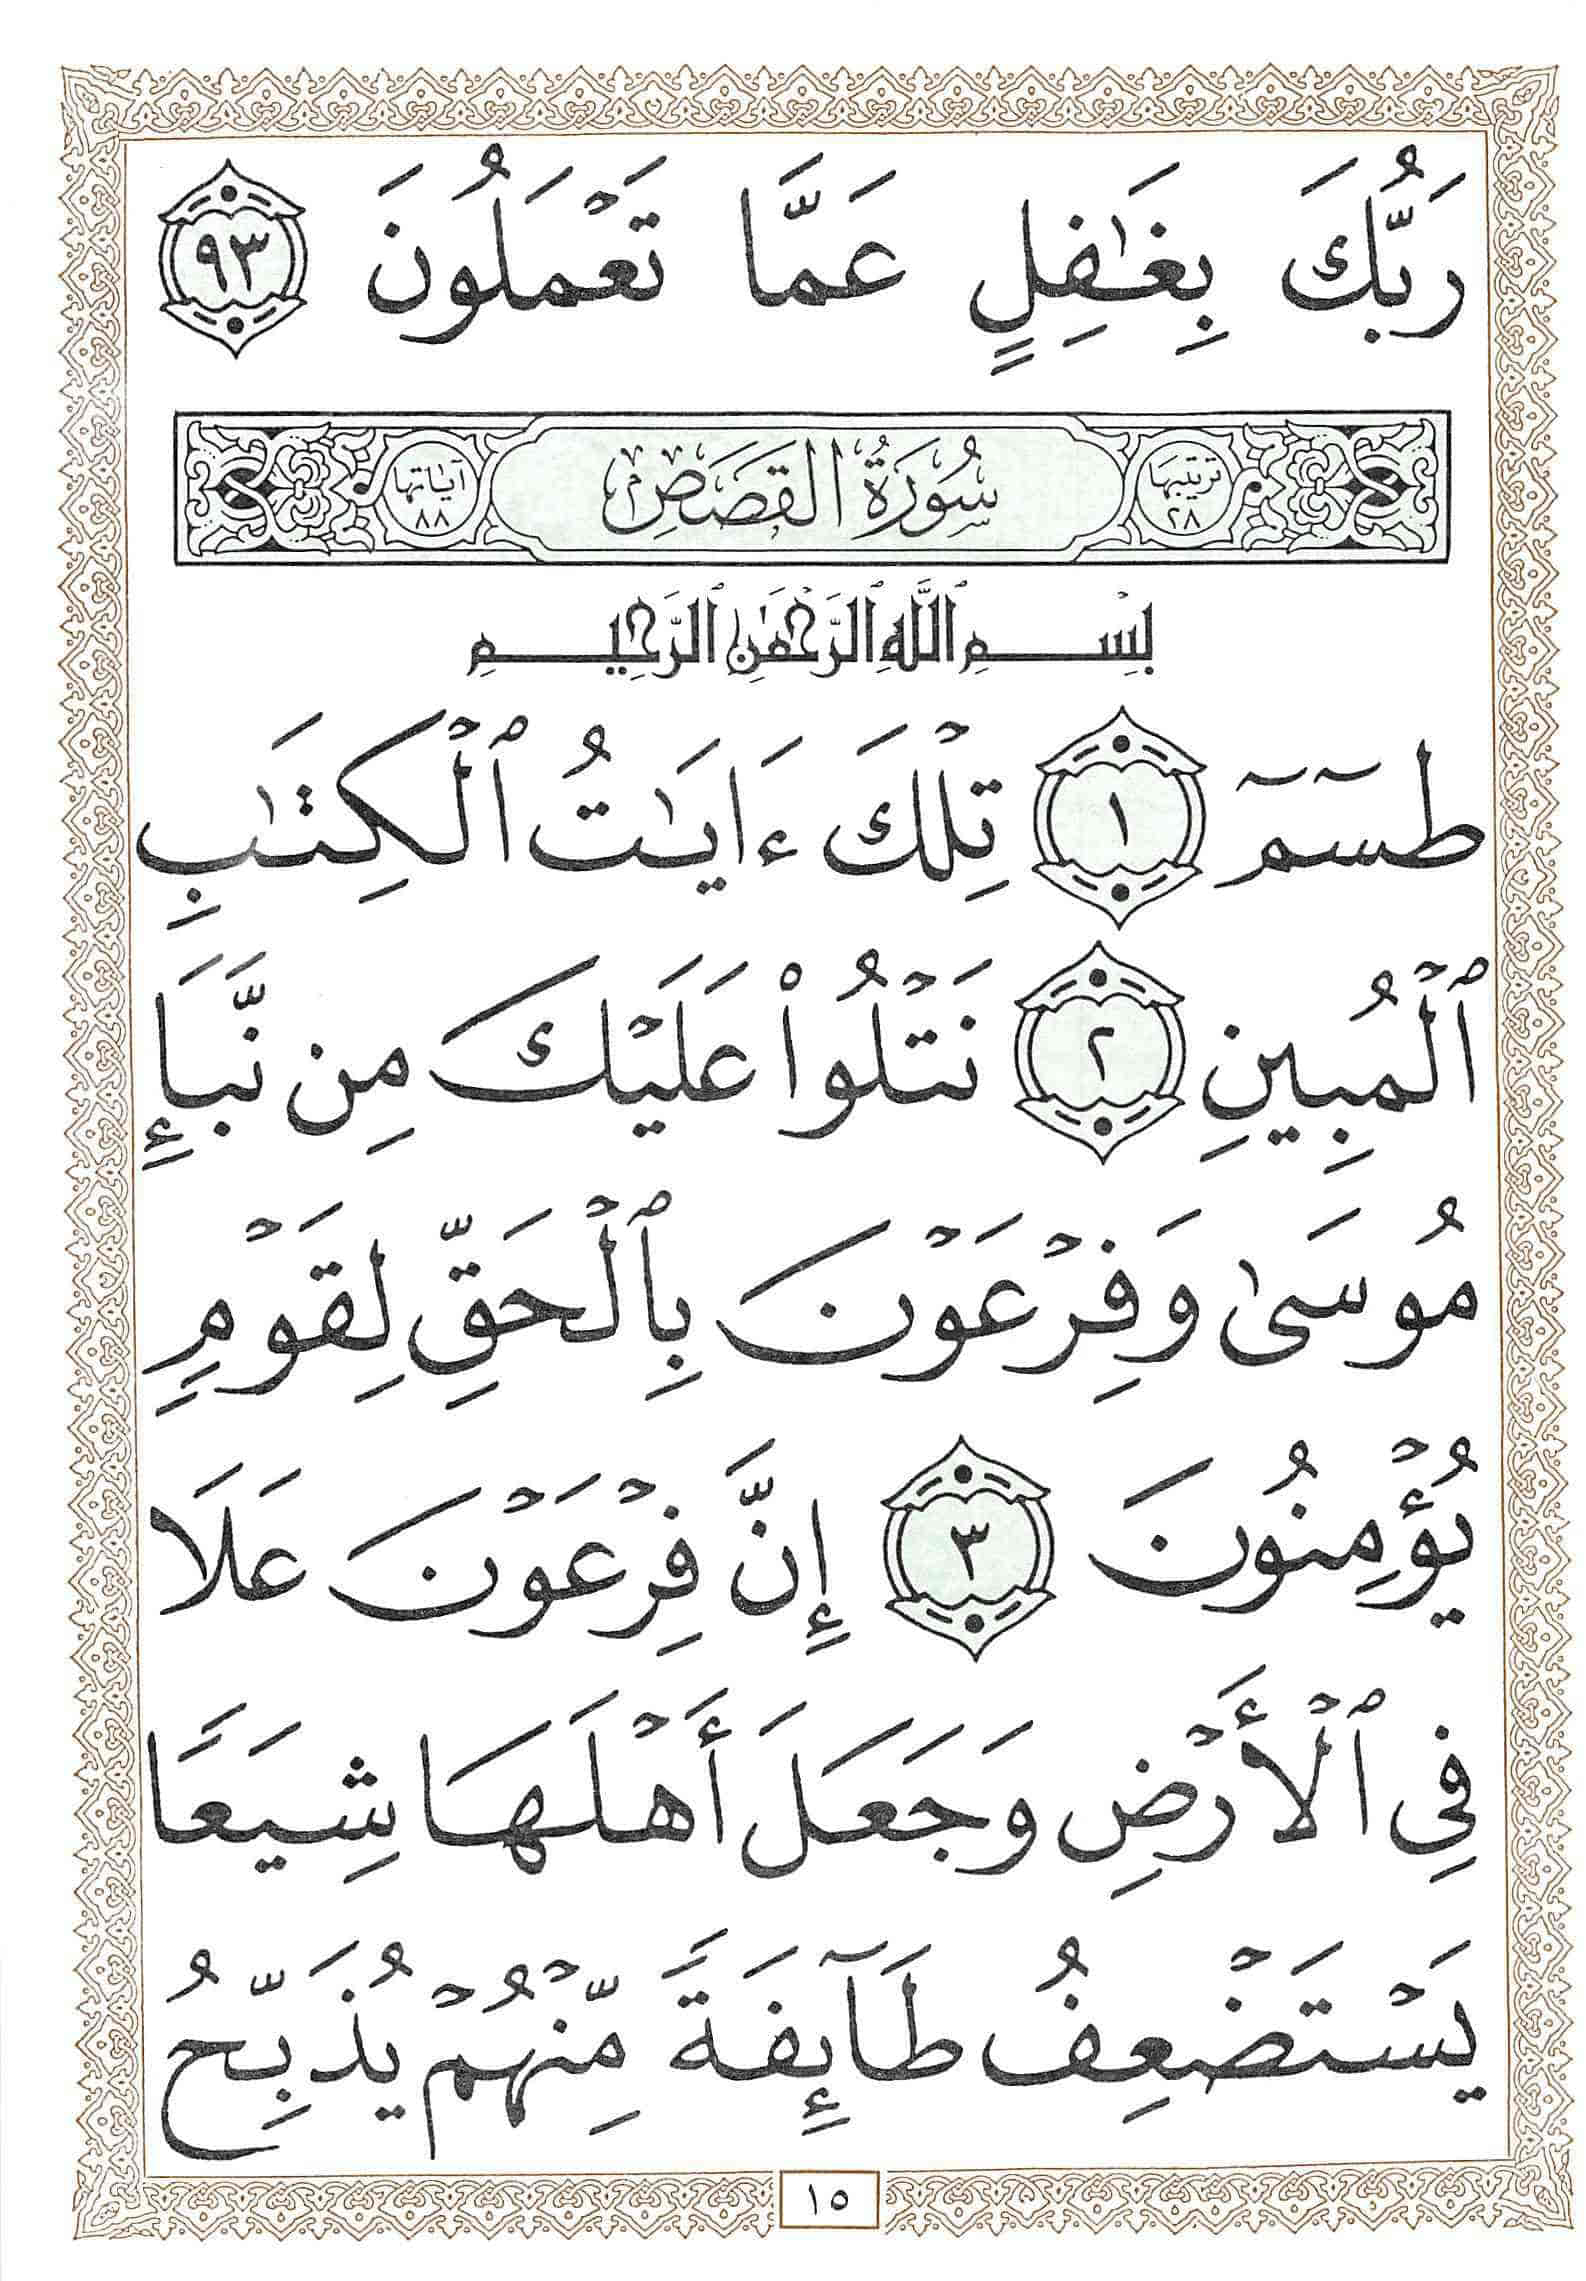 رَبُّكَ بِغَٰفِلٍ عَمَّا تَعْمَلُونَ ٩٣
ترتيبها ٢٨ سُورَةُ القَصَصِ آيَاتها ٨٨
بِسْمِ ٱللَّهِ ٱلرَّحْمَٰنِ ٱلرَّحِيمِ
طسٓمٓ ١ تِلْكَ ءَايَٰتُ ٱلْكِتَٰبِ
ٱلْمُبِينِ ٢ نَتْلُوا۟ عَلَيْكَ مِن نَّبَإِ
مُوسَىٰ وَفِرْعَوْنَ بِٱلْحَقِّ لِقَوْمٍ
يُؤْمِنُونَ ٣ إِنَّ فِرْعَوْنَ عَلَا
فِى ٱلْأَرْضِ وَجَعَلَ أَهْلَهَا شِيَعًا
يَسْتَضْعِفُ طَآئِفَةً مِّنْهُمْ يُذَبِّحُ
١٥